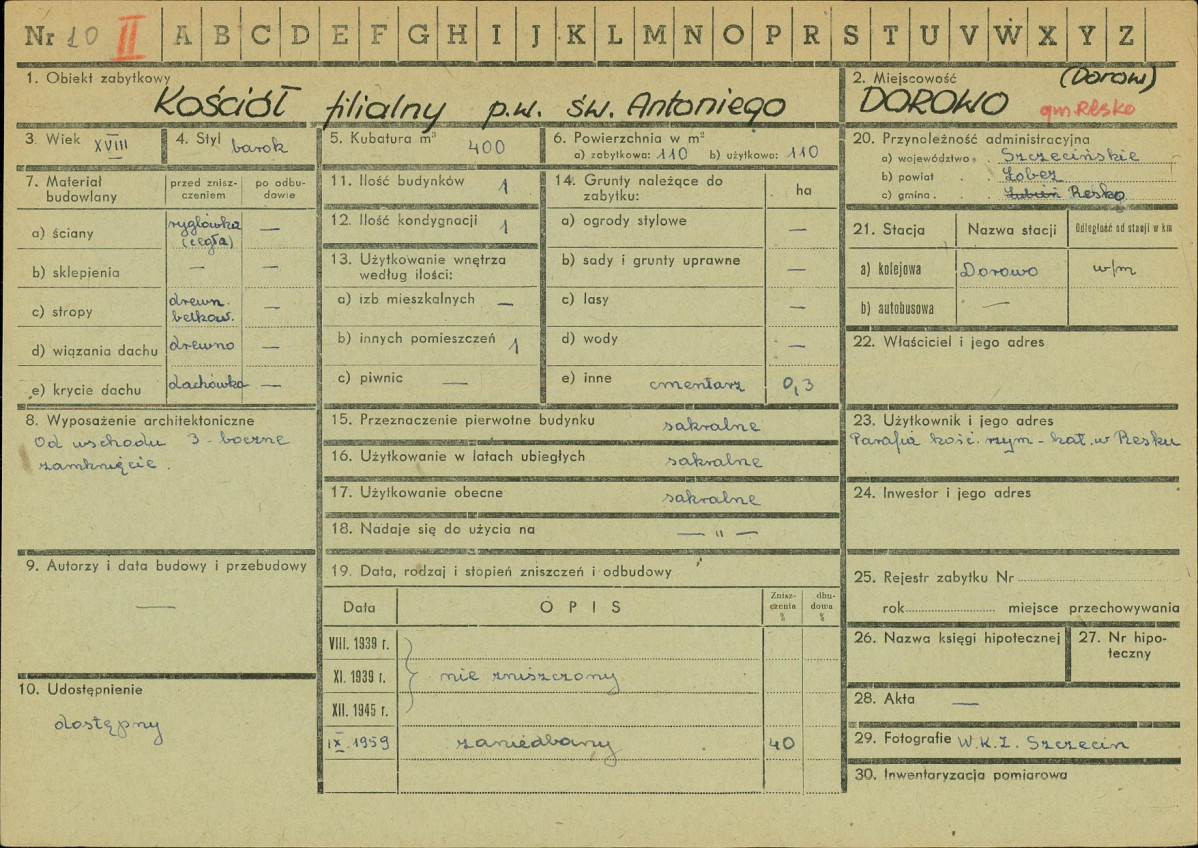 Nr 10 II A B C D E F G H I J K L M N O P R S T U V W X Y Z
1. Obiekt zabytkowy
Kościół filialny p.w. św. Antoniego
2. Miejscowość (Dorow)
DOROWO gm. Resko
3. Wiek XVIII
4. Styl barok
5. Kubatura m³ 400
6. Powierzchnia w m²
a) zabytkowa: 110 b) użytkowa: 110
7. Materiał budowlany
przed zniszczeniem
po odbudowie
a) ściany ryglówka (cegła) —
b) sklepienia — —
c) stropy drewn. belkow. —
d) wiązania dachu drewno —
e) krycie dachu dachówka —
8. Wyposażenie architektoniczne
Od wschodu 3-boczne
zamknięcie.
9. Autorzy i data budowy i przebudowy
—
10. Udostępnienie
dostępny
11. Ilość budynków 1
12. Ilość kondygnacji 1
13. Użytkowanie wnętrza
według ilości:
a) izb mieszkalnych —
b) innych pomieszczeń 1
c) piwnic —
14. Grunty należące do
zabytku:
ha
a) ogrody stylowe —
b) sady i grunty uprawne —
c) lasy —
d) wody —
e) inne cmentarz 0,3
15. Przeznaczenie pierwotne budynku sakralne
16. Użytkowanie w latach ubiegłych sakralne
17. Użytkowanie obecne sakralne
18. Nadaje się do użycia na — " —
19. Data, rodzaj i stopień zniszczeń i odbudowy
Data OPIS Zniszczenia % dbudowa %
VIII. 1939 r.
XI. 1939 r. nie zniszczony
XII. 1945 r.
IX. 1959 zaniedbany 40
20. Przynależność administracyjna
a) województwo . Szczecińskie
b) powiat . Łobez
c) gmina . . Resko
21. Stacja Nazwa stacji Odległość od stacji w km
a) kolejowa Dorowo w/m
b) autobusowa —
22. Właściciel i jego adres
23. Użytkownik i jego adres
Parafia kość. rzym-kat. w Resku
24. Inwestor i jego adres
25. Rejestr zabytku Nr
rok miejsce przechowywania
26. Nazwa księgi hipotecznej
27. Nr hipo-
teczny
28. Akta —
29. Fotografie W.K.Z. Szczecin
30. Inwentaryzacja pomiarowa